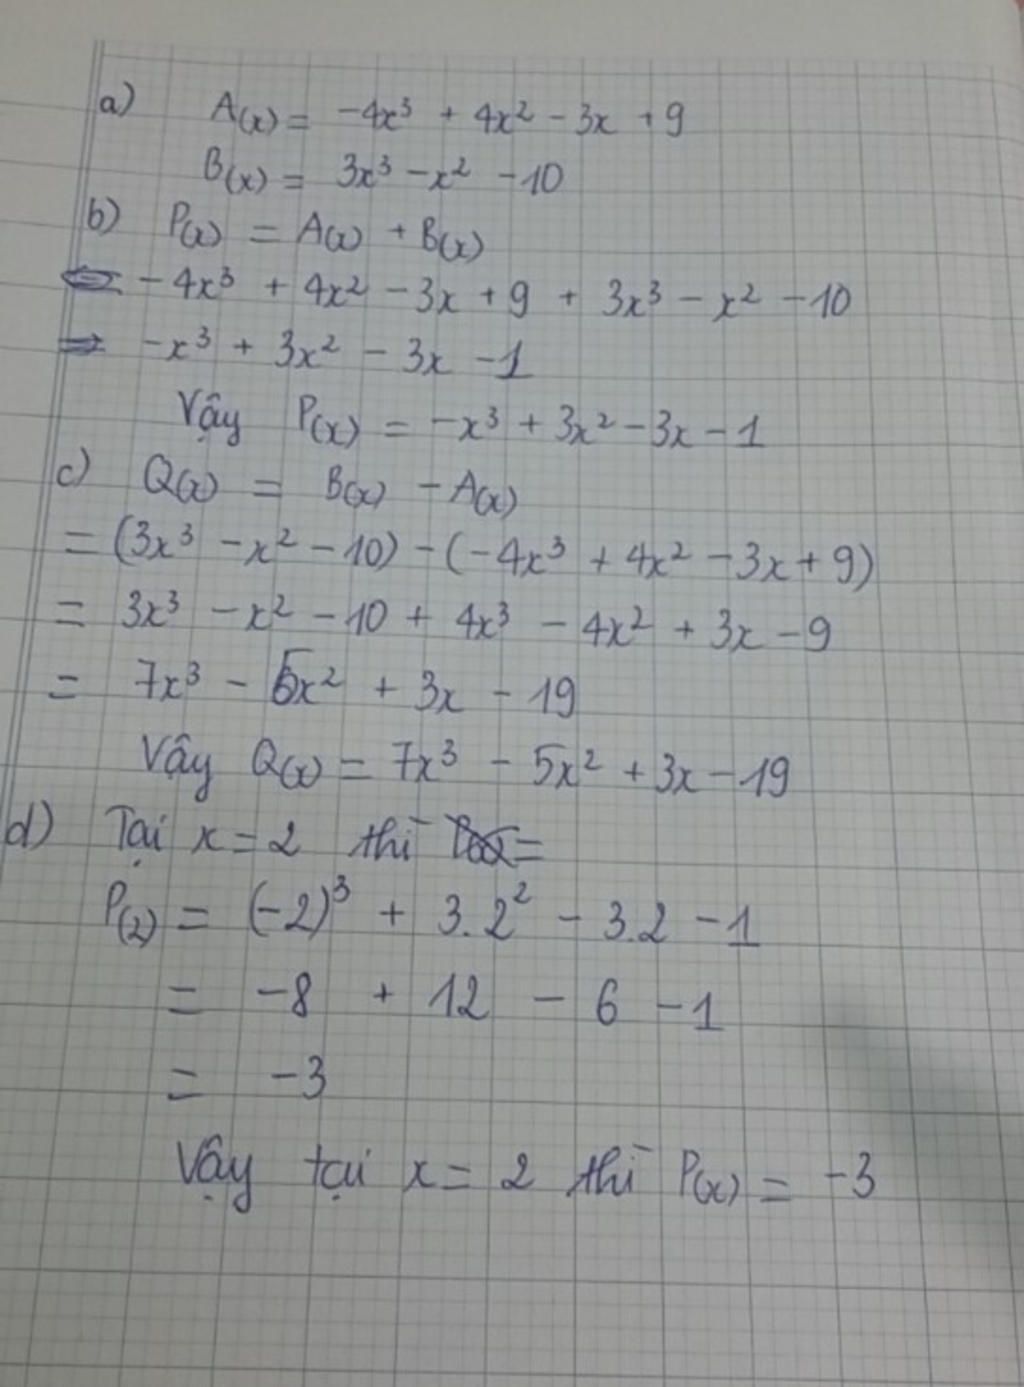 a) A(x) = -4x³ + 4x² - 3x + 9
B(x) = 3x³ - x² - 10
b) P(x) = A(x) + B(x)
- 4x³ + 4x² - 3x + 9 + 3x³ - x² - 10
= -x³ + 3x² - 3x - 1
Vậy P(x) = -x³ + 3x² - 3x - 1
c) Q(x) = B(x) - A(x)
= (3x³ - x² - 10) - (-4x³ + 4x² - 3x + 9)
= 3x³ - x² - 10 + 4x³ - 4x² + 3x - 9
= 7x³ - 5x² + 3x - 19
Vậy Q(x) = 7x³ - 5x² + 3x - 19
d) Tại x = 2 thì
P(2) = (-2)³ + 3.2² - 3.2 - 1
= -8 + 12 - 6 - 1
= -3
Vậy tại x = 2 thì P(x) = -3